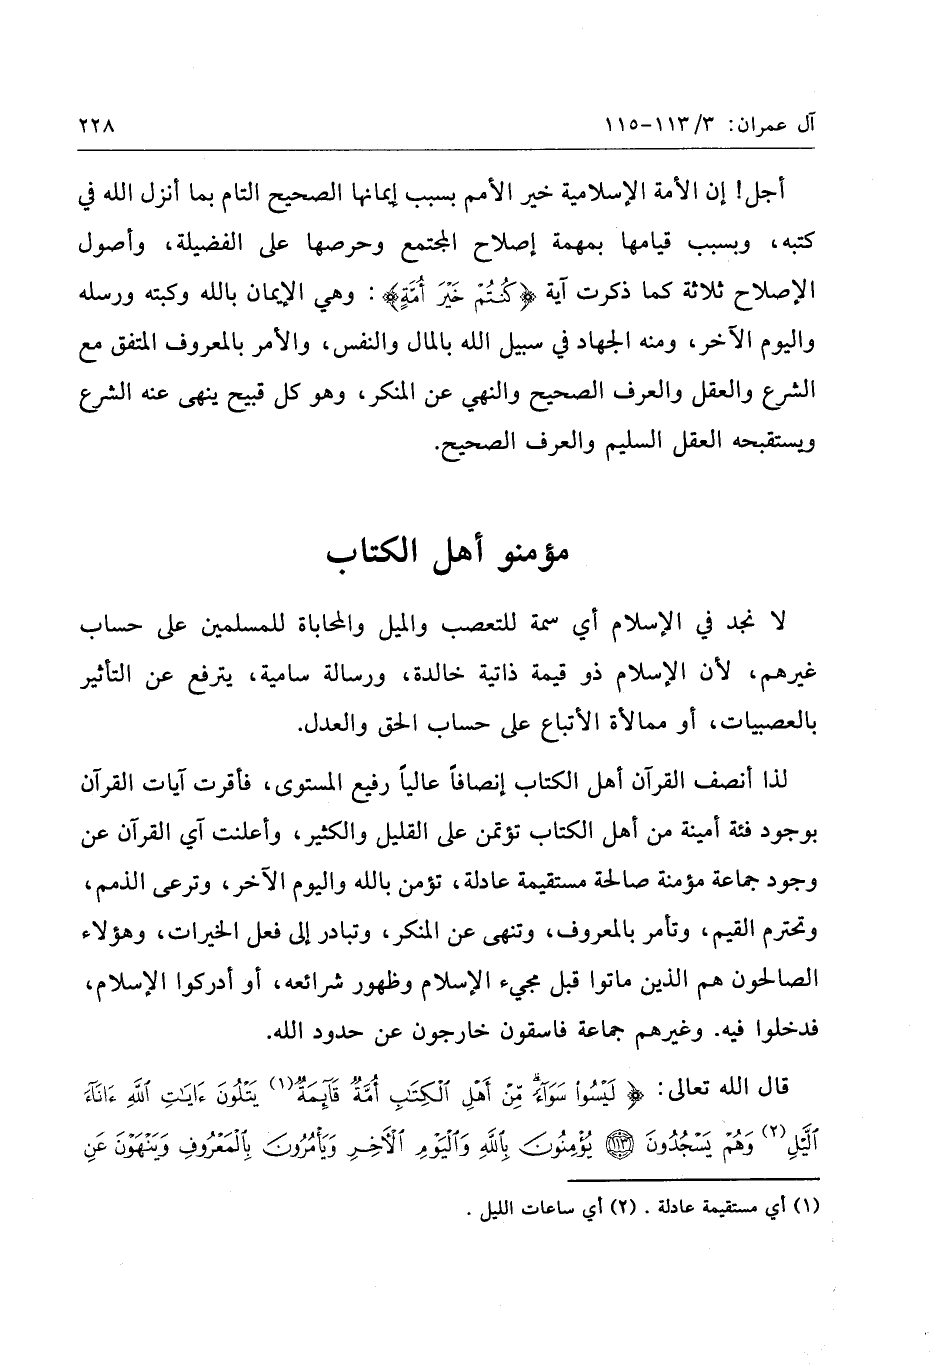 آل عمران: ٣/ ١١٣-١١٥ ٢٢٨
أجل! إن الأمة الإسلامية خير الأمم بسبب إيمانها الصحيح التام بما أنزل الله في
كتبه، وبسبب قيامها بمهمة إصلاح المجتمع وحرصها على الفضيلة، وأصول
الإصلاح ثلاثة كما ذكرت آية ﴿كُنتُمْ خَيْرَ أُمَّةٍ﴾: وهي الإيمان بالله وكبته ورسله
واليوم الآخر، ومنه الجهاد في سبيل الله بالمال والنفس، والأمر بالمعروف المتفق مع
الشرع والعقل والعرف الصحيح والنهي عن المنكر، وهو كل قبيح ينهى عنه الشرع
ويستقبحه العقل السليم والعرف الصحيح.
مؤمنو أهل الكتاب
لا نجد في الإسلام أي سمة للتعصب والميل والمحاباة للمسلمين على حساب
غيرهم، لأن الإسلام ذو قيمة ذاتية خالدة، ورسالة سامية، يترفع عن التأثير
بالعصبيات، أو ممالأة الأتباع على حساب الحق والعدل.
لذا أنصف القرآن أهل الكتاب إنصافاً عالياً رفيع المستوى، فأقرت آيات القرآن
بوجود فئة أمينة من أهل الكتاب تؤتمن على القليل والكثير، وأعلنت آي القرآن عن
وجود جماعة مؤمنة صالحة مستقيمة عادلة، تؤمن بالله واليوم الآخر، وترعى الذمم،
وتحترم القيم، وتأمر بالمعروف، وتنهى عن المنكر، وتبادر إلى فعل الخيرات، وهؤلاء
الصالحون هم الذين ماتوا قبل مجيء الإسلام وظهور شرائعه، أو أدركوا الإسلام،
فدخلوا فيه. وغيرهم جماعة فاسقون خارجون عن حدود الله.
قال الله تعالى: ﴿ لَيْسُواْ سَوَآءً ۗ مِّنْ أَهْلِ ٱلْكِتَٰبِ أُمَّةٌ قَآئِمَةٌ(١) يَتْلُونَ ءَايَٰتِ ٱللَّهِ ءَانَآءَ
ٱلَّيْلِ(٢) وَهُمْ يَسْجُدُونَ ﴿١١٣﴾ يُؤْمِنُونَ بِٱللَّهِ وَٱلْيَوْمِ ٱلْأَخِرِ وَيَأْمُرُونَ بِٱلْمَعْرُوفِ وَيَنْهَوْنَ عَنِ
(١) أي مستقيمة عادلة . (٢) أي ساعات الليل .